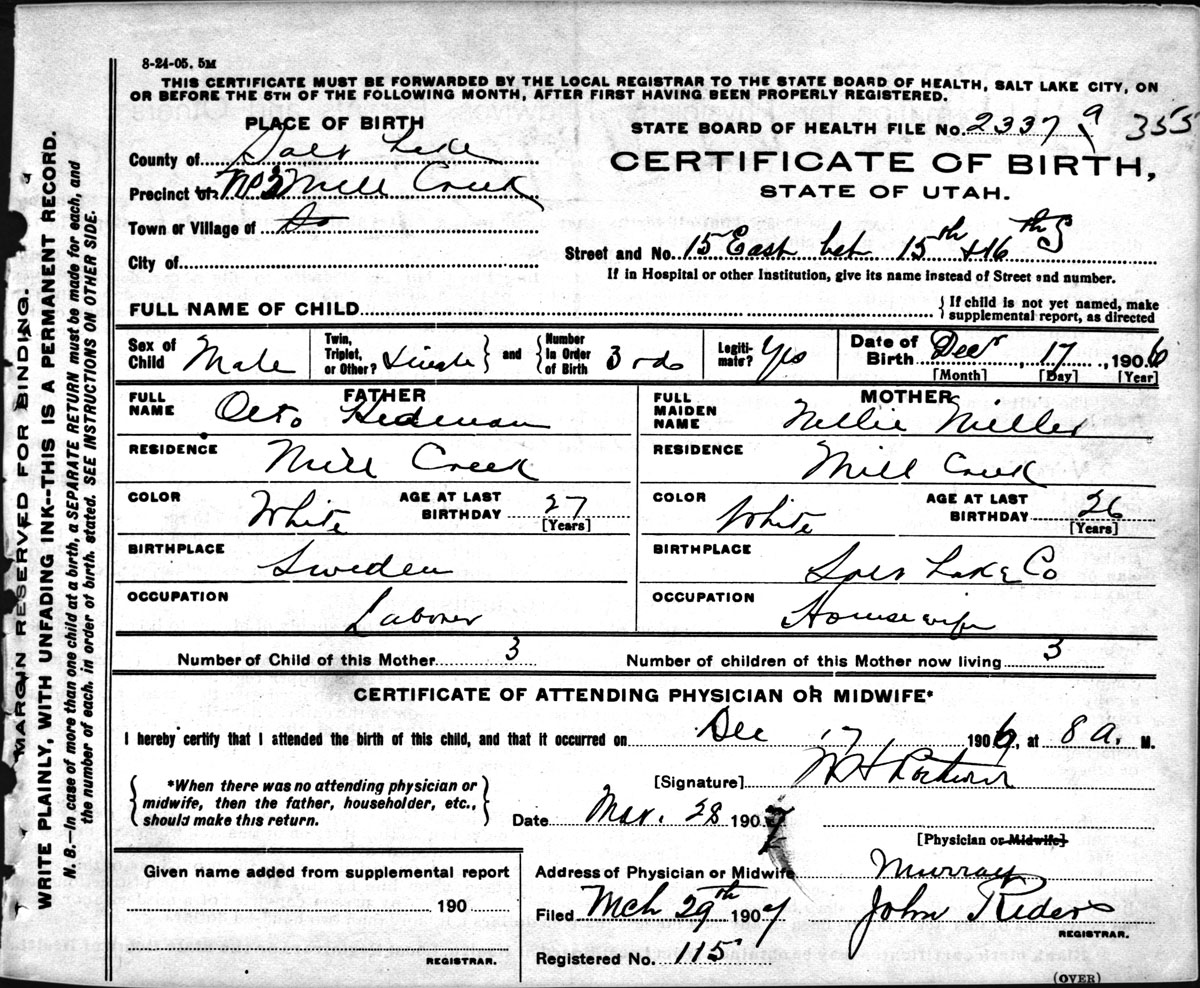 8-24-05. 5M
THIS CERTIFICATE MUST BE FORWARDED BY THE LOCAL REGISTRAR TO THE STATE BOARD OF HEALTH, SALT LAKE CITY, ON
OR BEFORE THE 5TH OF THE FOLLOWING MONTH, AFTER FIRST HAVING BEEN PROPERLY REGISTERED.
PLACE OF BIRTH
County of Salt Lake
Precinct of No 3 Mill Creek
Town or Village of do
City of
STATE BOARD OF HEALTH FILE No. 2337 9 355
CERTIFICATE OF BIRTH,
STATE OF UTAH.
Street and No. 15 East bet 15th & 16th S
If in Hospital or other Institution, give its name instead of Street and number.
FULL NAME OF CHILD
{If child is not yet named, make
supplemental report, as directed
Sex of Child Male
Twin, Triplet, or Other? Single } and { Number In Order of Birth 3rd
Legiti-mate? Yes
Date of Birth Decr, 17, 1906
[Month] [Day] [Year]
FATHER
FULL NAME Otto Hedman
RESIDENCE Mill Creek
COLOR White
AGE AT LAST BIRTHDAY 27
[Years]
BIRTHPLACE Sweden
OCCUPATION Laborer
MOTHER
FULL MAIDEN NAME Nellie Miller
RESIDENCE Mill Creek
COLOR White
AGE AT LAST BIRTHDAY 26
[Years]
BIRTHPLACE Salt Lake Co
OCCUPATION Housewife
Number of Child of this Mother 3
Number of children of this Mother now living 3
CERTIFICATE OF ATTENDING PHYSICIAN OR MIDWIFE*
I hereby certify that I attended the birth of this child, and that it occurred on Dec 17 1906, at 8 a. M.
{ *When there was no attending physician or
midwife, then the father, householder, etc.,
should make this return. }
[Signature] W H
Date Mar. 28 1907
[Physician or Midwife]
Given name added from supplemental report
190
REGISTRAR.
Address of Physician or Midwife Murray
Filed Mch 29th 1907 John Riders
REGISTRAR.
Registered No. 115
(OVER)
MARGIN RESERVED FOR BINDING.
WRITE PLAINLY, WITH UNFADING INK--THIS IS A PERMANENT RECORD.
N. B.—In case of more than one child at a birth, a SEPARATE RETURN must be made for each, and
the number of each, in order of birth, stated. SEE INSTRUCTIONS ON OTHER SIDE.